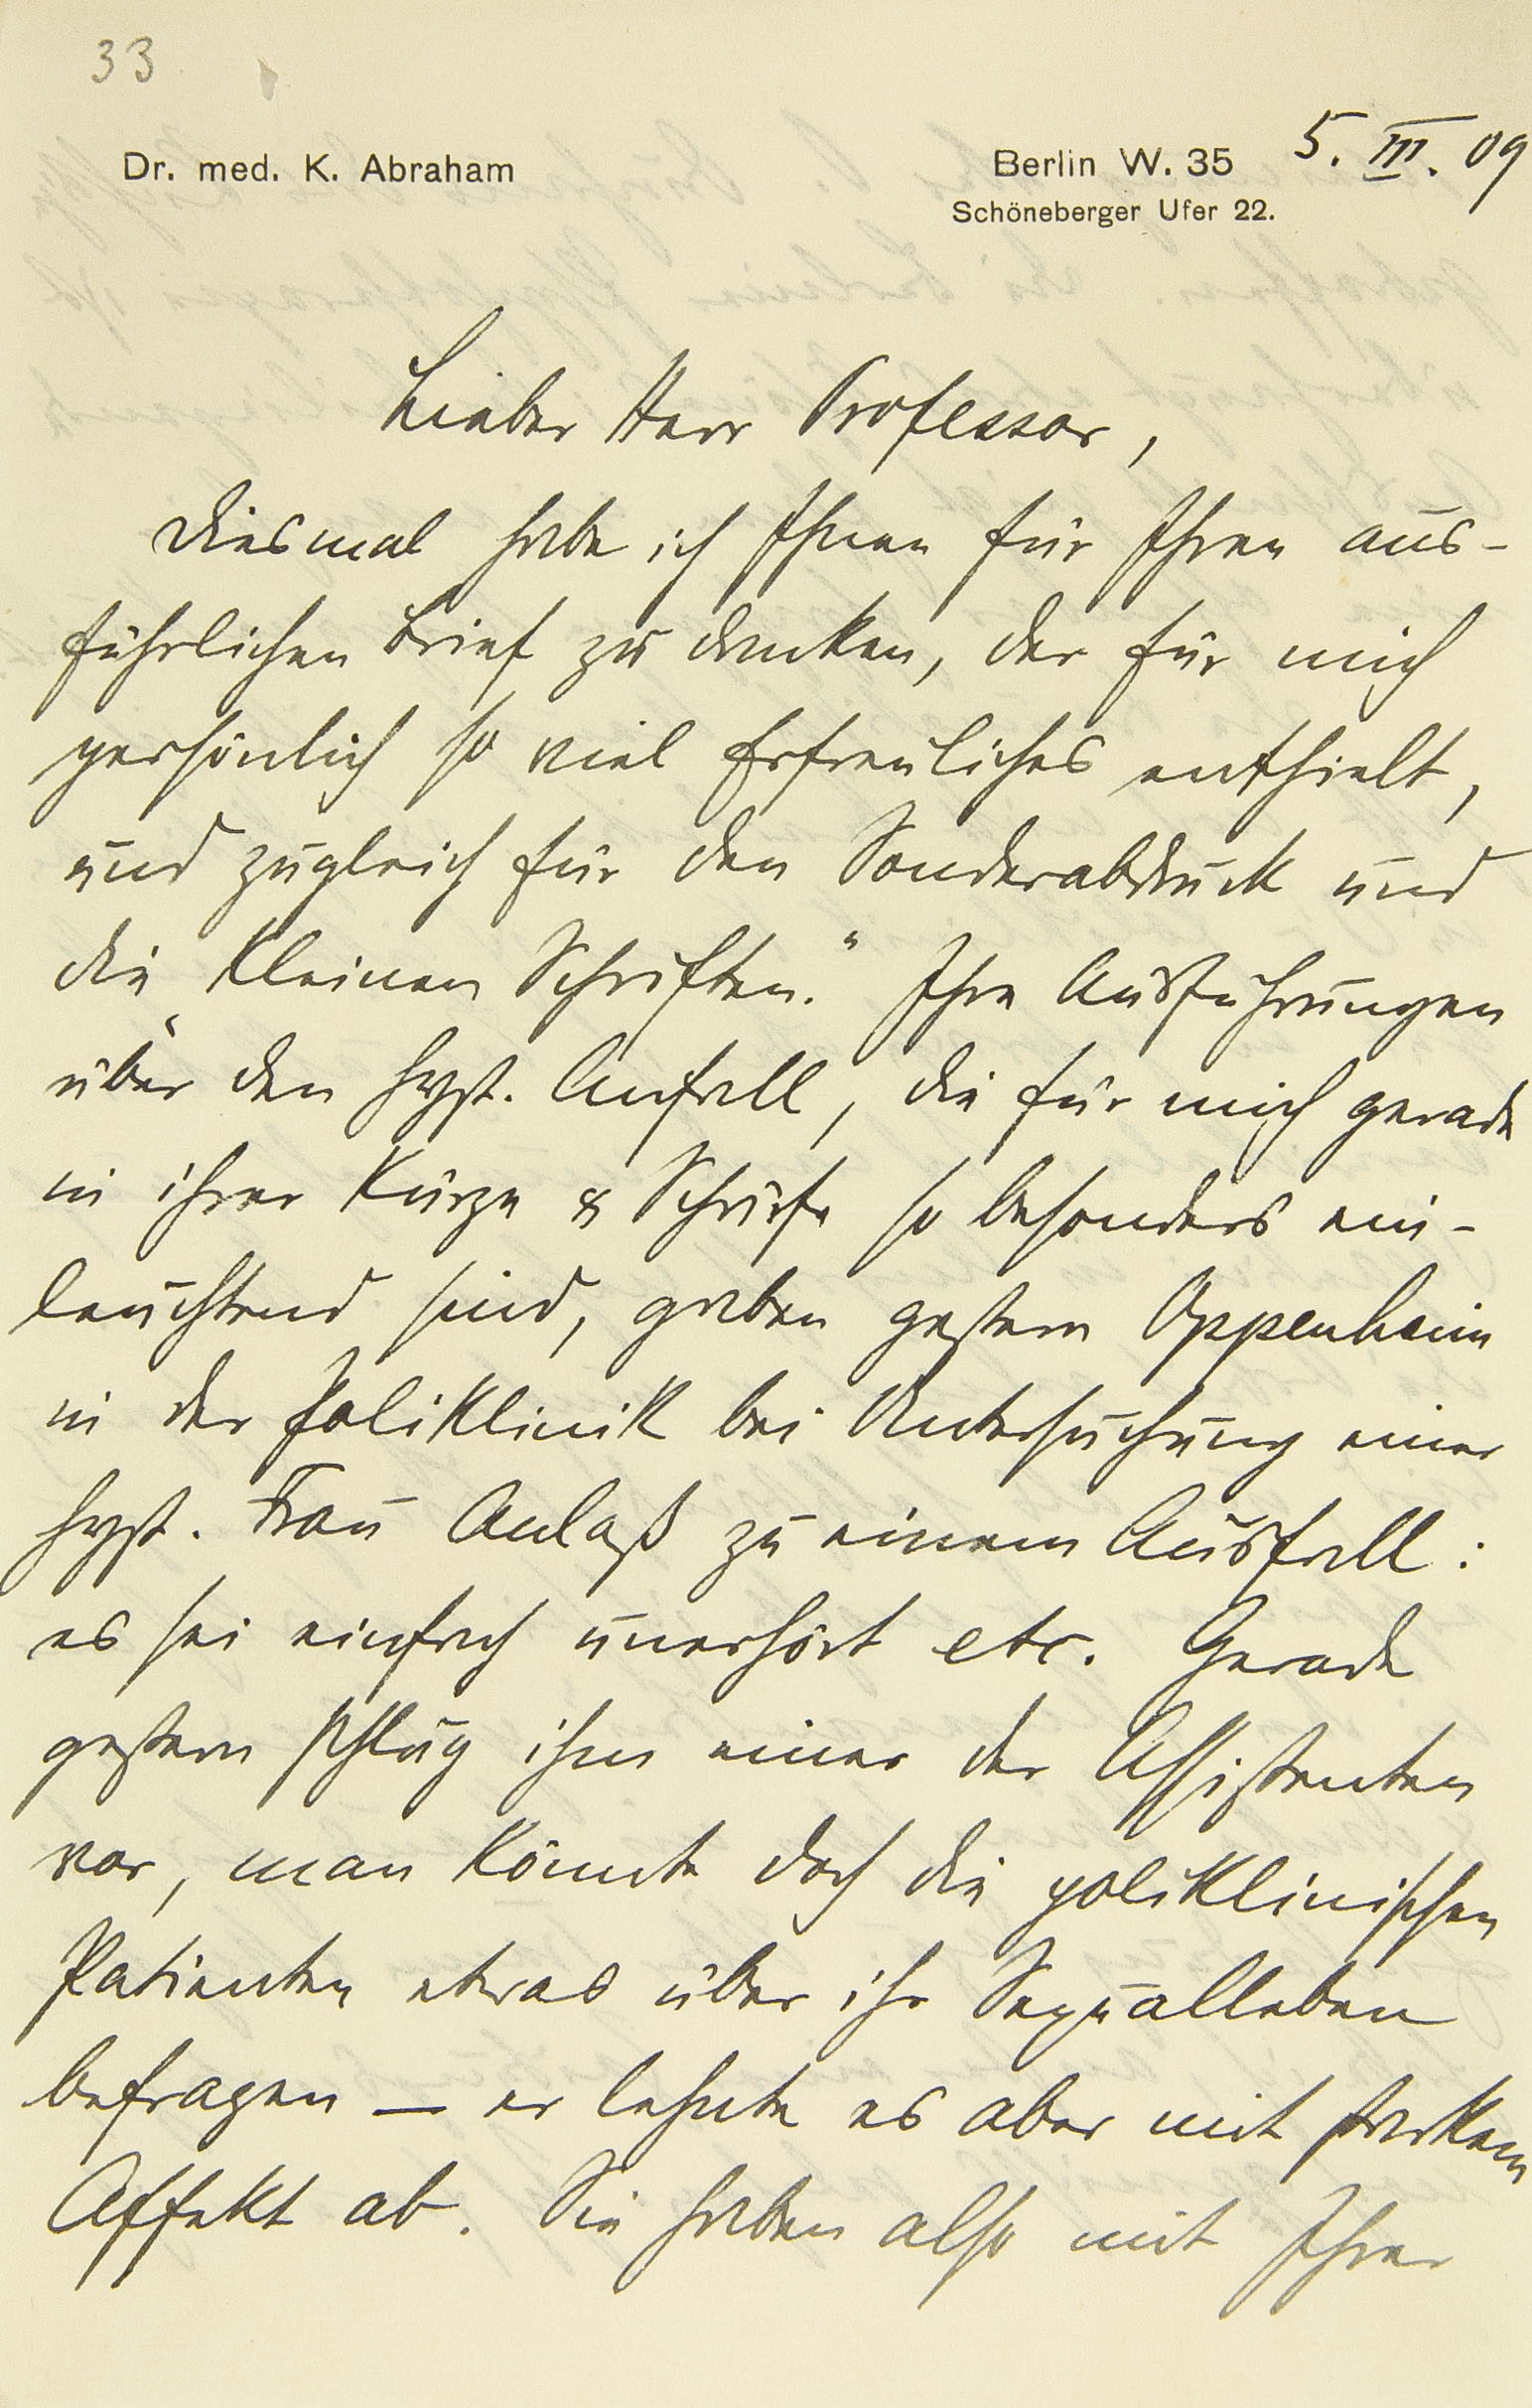 33
Dr. med. K. Abraham
Berlin W. 35 5. III. 09
Schöneberger Ufer 22.
Lieber Herr Professor,
diesmal habe ich Ihnen für Ihren aus-
führlichen Brief zu danken, der für mich
persönlich so viel Erfreuliches enthielt,
und zugleich für den Sonderabdruck und
die „Kleinen Schriften.“ Ihre Ausführungen
über den hyst. Anfall, die für mich gerade
in ihrer Kürze & Schärfe so besonders ein-
leuchtend sind, gaben gestern Oppenheim
in der Poliklinik bei Untersuchung einer
hyst. Frau Anlaß zu einem Ausfall:
es sei einfach unerhört etc. Gerade
gestern schlug ihm einer der Assistenten
vor, man könnte doch die poliklinischen
Patienten etwas über ihr Sexualleben
befragen — er lehnte es aber mit starkem
Affekt ab. Sie haben also mit Ihrer